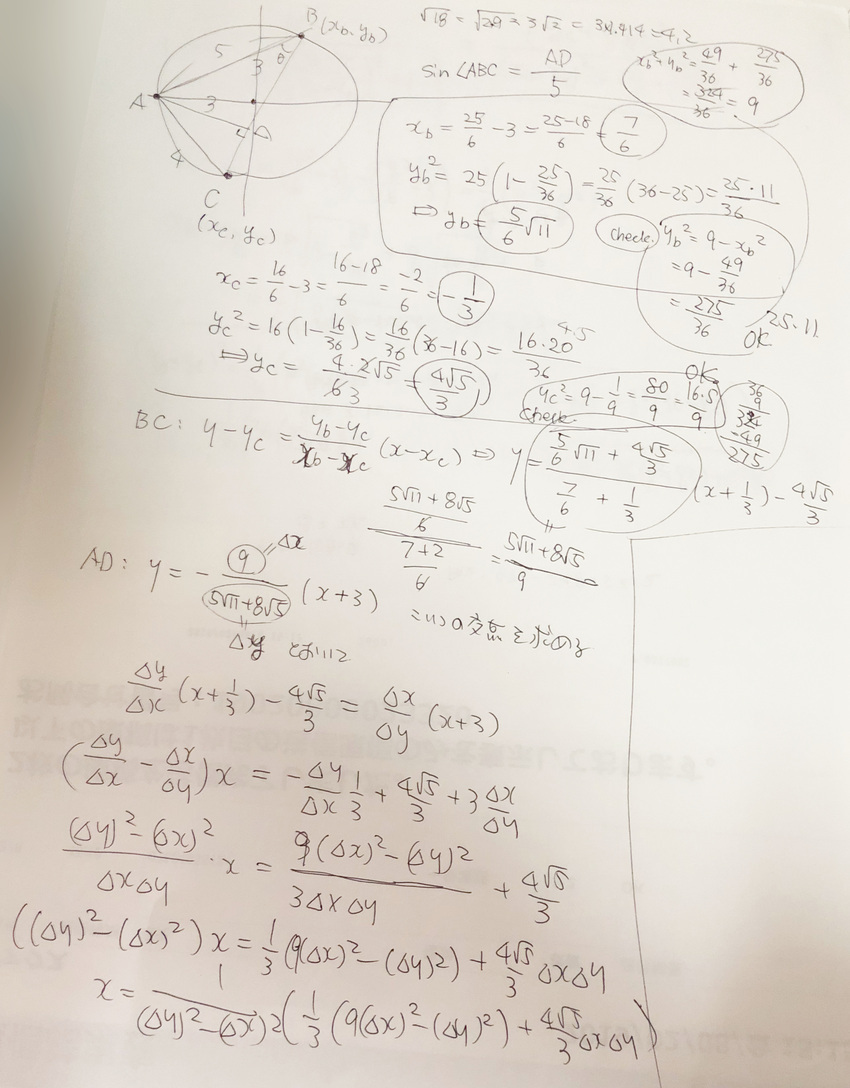 B (x_b, y_b)
5
θ
3
A
3
D
4
C
(x_c, y_c)
√18 = √2·9 = 3√2 = 3×1.414 = 4.2
sin∠ABC = AD/5
x_b² + y_b² = 49/36 + 275/36
= 324/36 = 9
x_b = 25/6 - 3 = (25-18)/6 = 7/6
y_b² = 25(1 - 25/36) = 25/36 (36-25) = 25·11/36
⇒ y_b = 5/6 √11
check. y_b² = 9 - x_b²
= 9 - 49/36
= 275/36
25·11
OK
x_c = 16/6 - 3 = (16-18)/6 = -2/6 = -1/3
y_c² = 16(1 - 16/36) = 16/36 (36-16) = 16·20/36
4·5
⇒ y_c = 4·2√5/63 = 4√5/3
OK
check. y_c² = 9 - 1/9 = 80/9 = 16·5/9
36
9
324
-49
275
BC: y - y_c = (y_b - y_c)/(x_b - x_c) (x - x_c) ⇒ y = (5/6 √11 + 4√5/3)/(7/6 + 1/3) (x + 1/3) - 4√5/3
((5√11 + 8√5)/6)/((7+2)/6) = (5√11 + 8√5)/9
AD: y = - 9/(5√11+8√5) (x+3)
Δx
Δy とおいて
この2つの交点を求める
Δy/Δx (x + 1/3) - 4√5/3 = Δx/Δy (x+3)
(Δy/Δx - Δx/Δy) x = - Δy/Δx 1/3 + 4√5/3 + 3 Δx/Δy
((Δy)² - (Δx)²)/(ΔxΔy) · x = (9(Δx)² - (Δy)²)/(3ΔxΔy) + 4√5/3
((Δy)² - (Δx)²) x = 1/3 (9(Δx)² - (Δy)²) + 4√5/3 ΔxΔy
x = 1/((Δy)² - (Δx)²) (1/3 (9(Δx)² - (Δy)²) + 4√5/3 ΔxΔy)